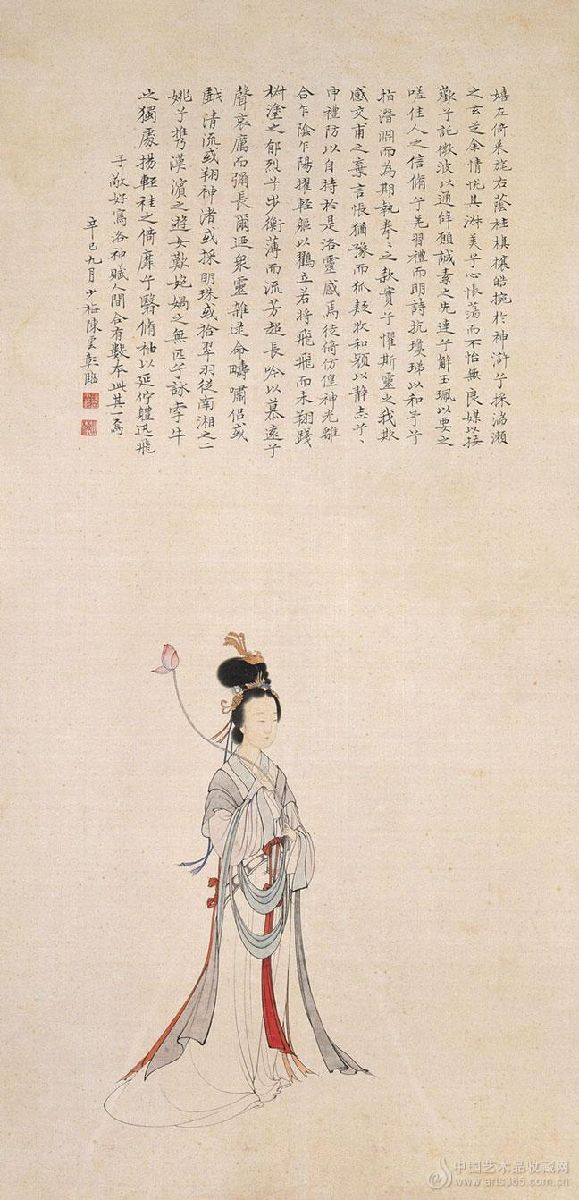 嬉左倚采旄右蔭桂旗攘皓捥於神滸兮採湍瀨
之玄芝余情悅其淋美兮心悵蕩而不怡無良媒以接
歡兮託微波以通辭願誠素之先達兮解玉珮以要之
嗟佳人之信脩兮羌習禮而明詩抗瓊珶以和予兮
指潛淵而為期執拳々之款實兮懼斯靈之我欺
感交甫之棄言悵猶豫而狐疑收和顏以靜志兮
申禮防以自持於是洛靈感焉徙倚仿偟神光離
合乍陰乍陽擢輕軀以鸖立若將飛飛而未翔踐
椒塗之郁烈兮步衡薄而流芳超長吟以慕遠兮
聲哀厲而彌長爾迺眾靈雜遝命疇嘯侶或
戲清流或翔神渚或採明珠或拾翠羽從南湘之二
姚兮攜漢濱之遊女歎炮媧之無匹兮詠牽牛
之獨處揚輕袿之倚靡兮翳脩袖以延佇體迅飛
子敬好寫洛神賦人間合有數本此其一焉
辛巳九月少梅陳雲彰臨
中国艺术品收藏网
www.arts365.com.cn